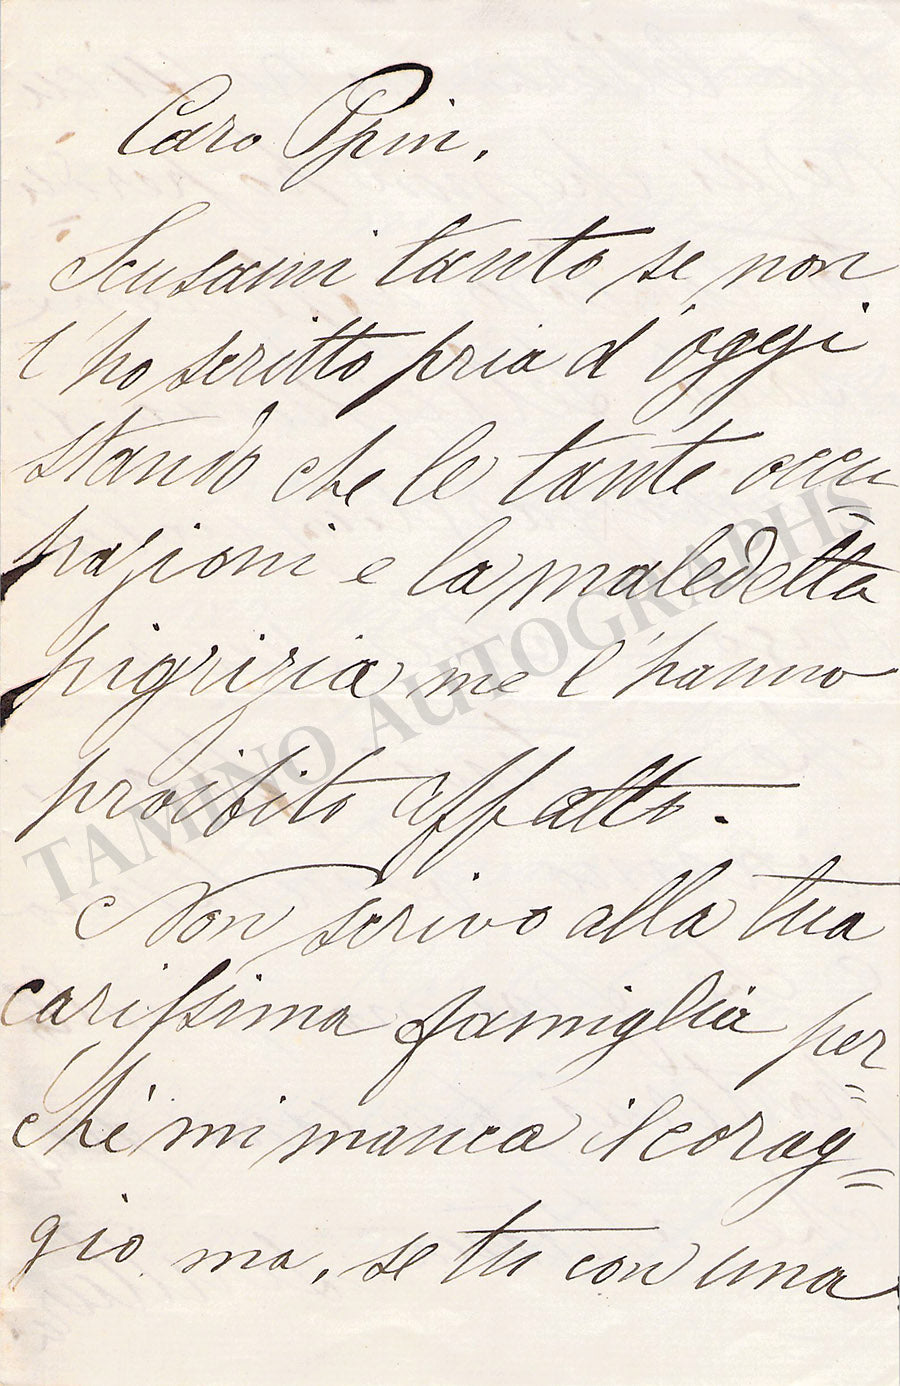 Caro Ppin,
Scusami tanto se non
t'ho scritto pria d'oggi
stando che le tante occu=
pazioni e la maledetta
pigrizia me l'hanno
proibito affatto.
Non scrivo alla tua
carissima famiglia per=
ché mi manca il corag=
gio ma, se tu con una
TAMINO AUTOGRAPHS